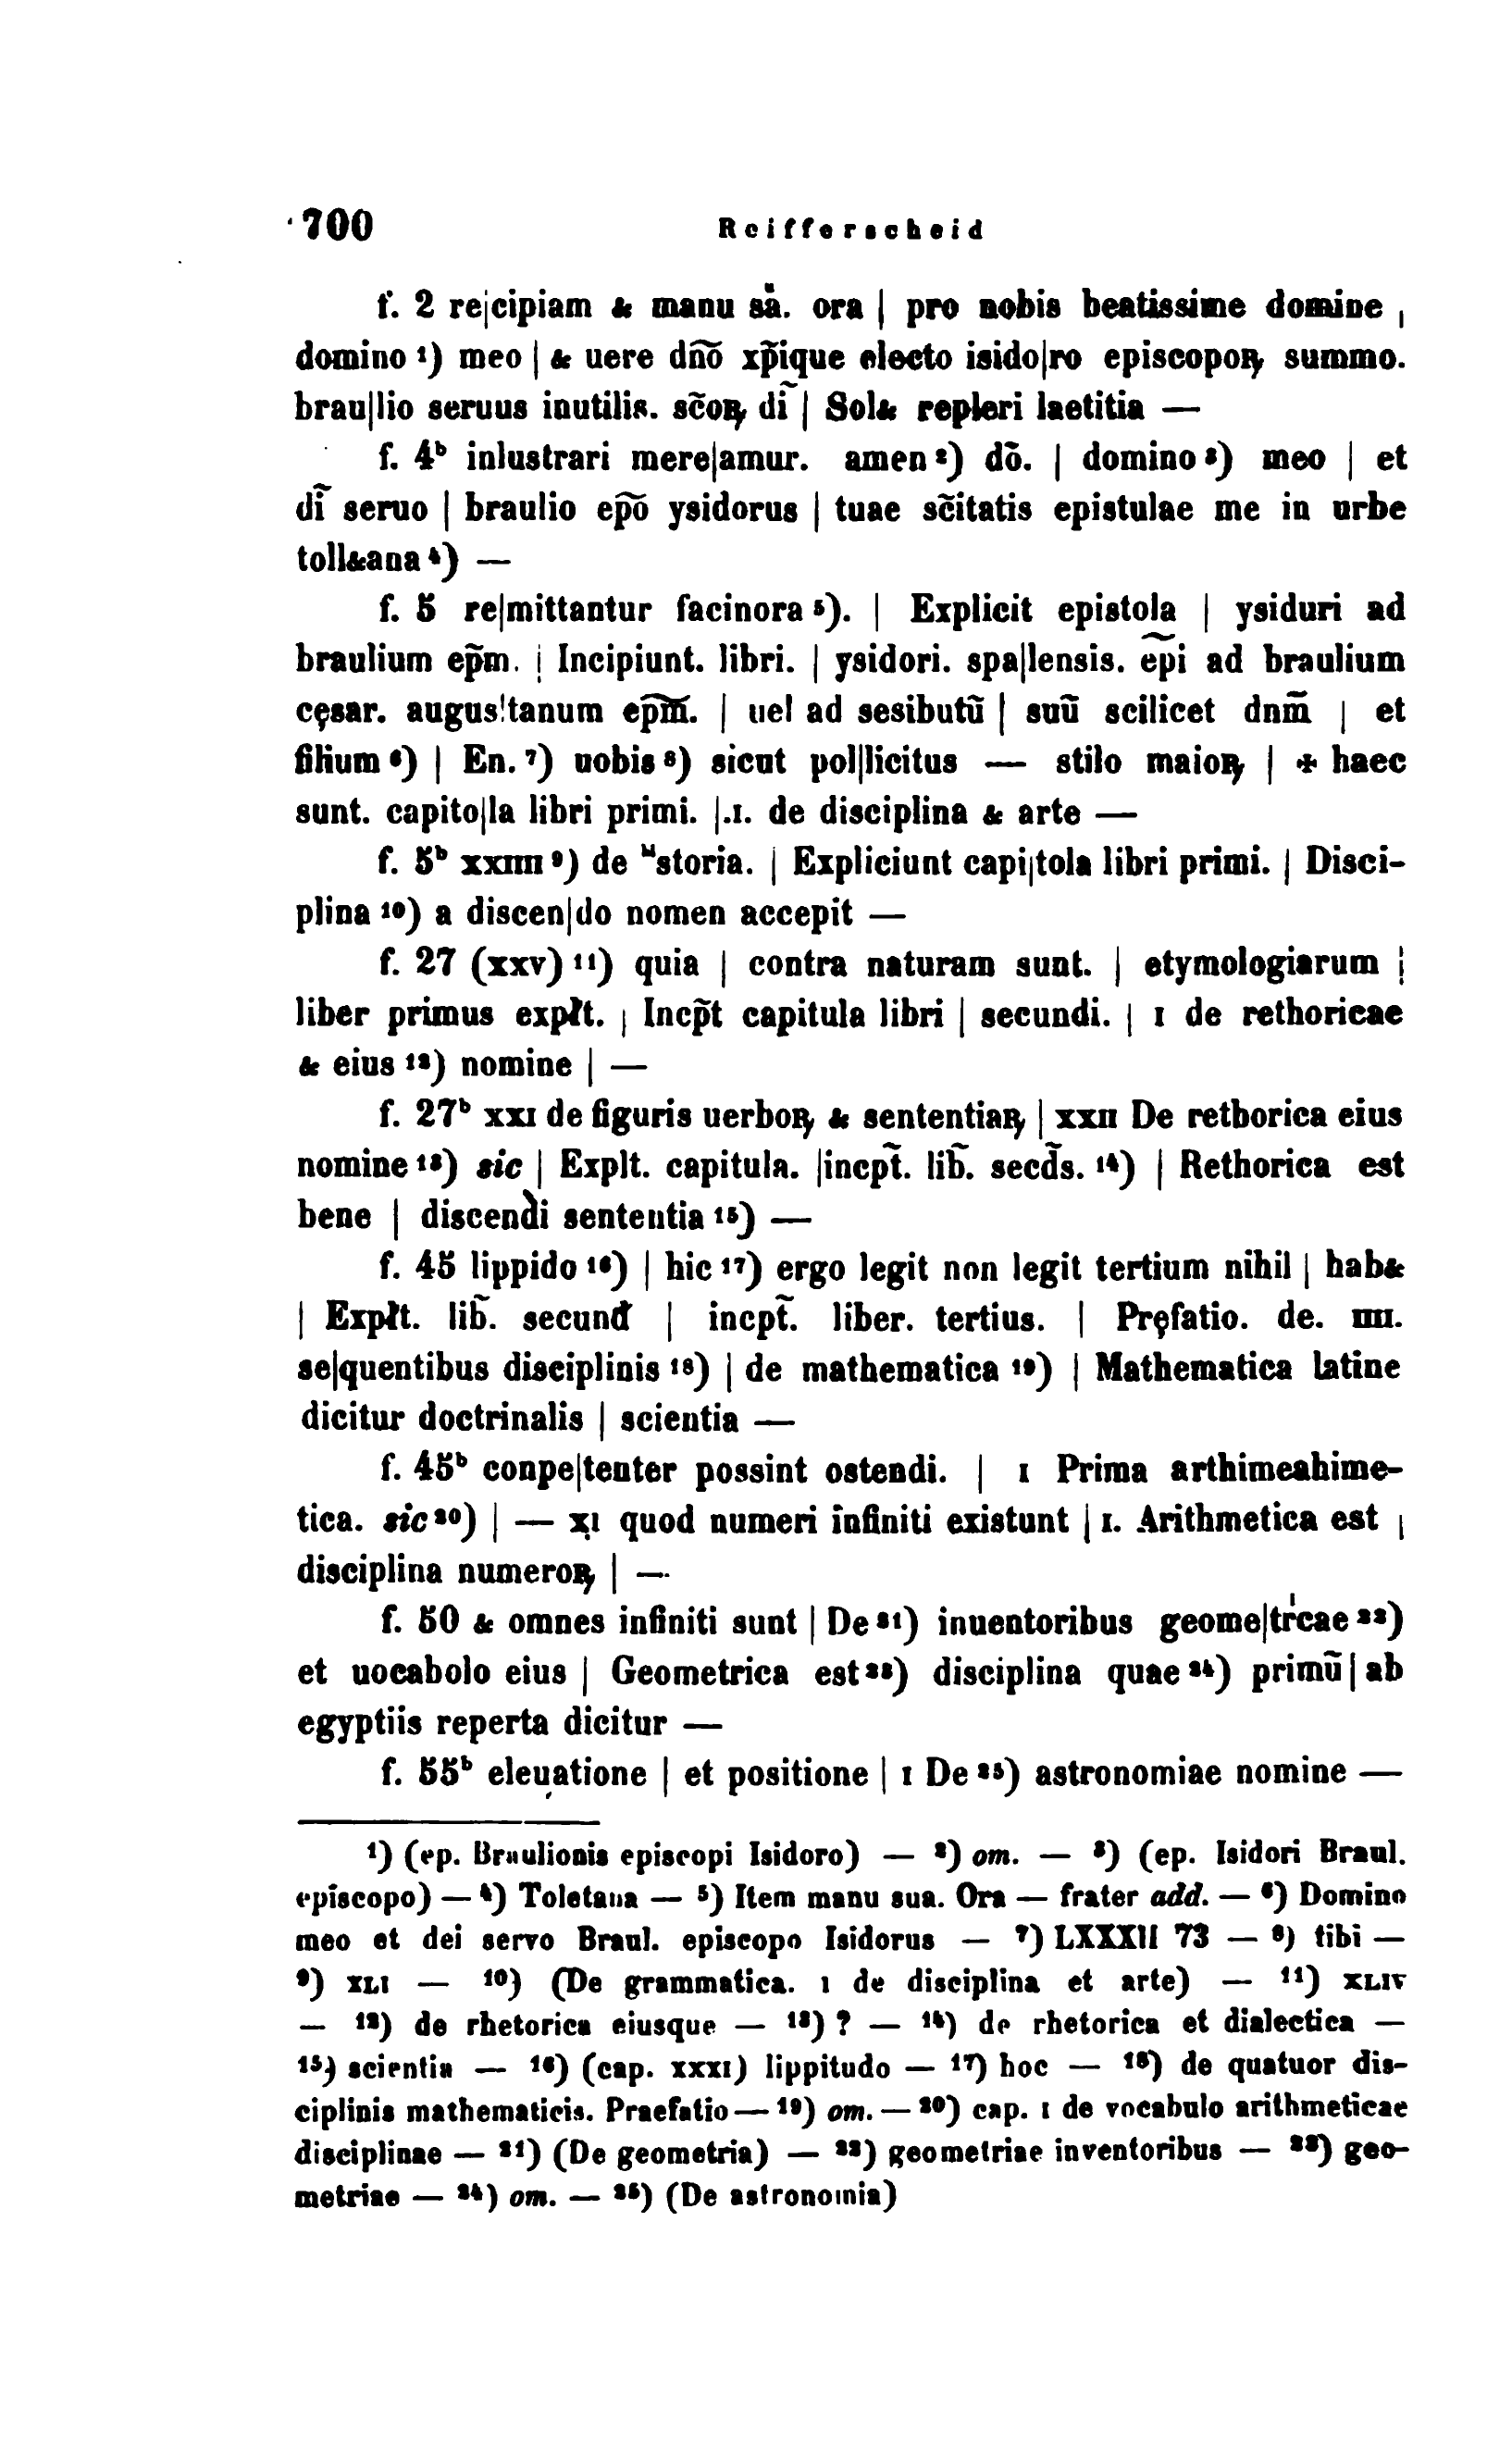 700 Reifferscheid
f. 2 re|cipiam & manu sa̎. ora | pro nobis beatissime domine |
domino ¹) meo | & uere dño xp̃ique electo isido|ro episcopoꝝ summo.
brau|lio seruus inutilis. sc̃oꝝ di͂ | Sol& repleri laetitia —
f. 4ᵇ inlustrari mere|amur. amen ²) dõ. | domino ³) meo | et
di͂ seruo | braulio ep̃o ysidorus | tuae sc̃itatis epistulae me in urbe
toll&ana ⁴) —
f. 5 re|mittantur facinora ⁵). | Explicit epistola | ysiduri ad
braulium ep̃m. | Incipiunt. libri. | ysidori. spa|lensis. ep̃i ad braulium
cęsar. augus|tanum ep̃m̃. | uel ad sesibutũ | suũ scilicet dnm̃ | et
filium ⁶) | En. ⁷) uobis ⁸) sicut pol|licitus — stilo maioꝝ | ✣ haec
sunt. capito|la libri primi. |.ɪ. de disciplina & arte —
f. 5ᵇ xxɪɪɪɪ ⁹) de ᴴstoria. | Expliciunt capi|tola libri primi. | Disci-
plina ¹⁰) a discen|do nomen accepit —
f. 27 (xxv) ¹¹) quia | contra naturam sunt. | etymologiarum |
liber primus expłt. | Incp̃t capitula libri | secundi. | ɪ de rethoricae
& eius ¹²) nomine | —
f. 27ᵇ xxɪ de figuris uerboꝝ & sententiaꝝ | xxɪɪ De rethorica eius
nomine ¹³) sic | Explt. capitula. |incpt̃. lib̃. secd̃s. ¹⁴) | Rethorica est
bene | discendi sententia ¹⁵) —
f. 45 lippido ¹⁶) | hic ¹⁷) ergo legit non legit tertium nihil | hab&
| Expłt. lib̃. secunđ | incpt̃. liber. tertius. | Pręfatio. de. ɪɪɪɪ.
se|quentibus disciplinis ¹⁸) | de mathematica ¹⁹) | Mathematica latine
dicitur doctrinalis | scientia —
f. 45ᵇ conpe|tenter possint ostendi. | ɪ Prima arthimeahime-
tica. sic ²⁰) | — xị quod numeri infiniti existunt | ɪ. Arithmetica est |
disciplina numeroꝝ | —
f. 50 & omnes infiniti sunt | De ²¹) inuentoribus geome|trⁱcae ²²)
et uocabolo eius | Geometrica est ²³) disciplina quae ²⁴) primũ | ab
egyptiis reperta dicitur —
f. 55ᵇ eleuạtione | et positione | ɪ De ²⁵) astronomiae nomine —
¹) (ep. Braulionis episcopi Isidoro) — ²) om. — ³) (ep. Isidori Braul.
episcopo) — ⁴) Toletana — ⁵) Item manu sua. Ora — frater add. — ⁶) Domino
meo et dei servo Braul. episcopo Isidorus — ⁷) LXXXII 73 — ⁸) tibi —
⁹) xʟɪ — ¹⁰) (De grammatica. ɪ de disciplina et arte) — ¹¹) xʟɪv
— ¹²) de rhetorica eiusque — ¹³) ? — ¹⁴) de rhetorica et dialectica —
¹⁵) scientia — ¹⁶) (cap. xxxɪ) lippitudo — ¹⁷) hoc — ¹⁸) de quatuor dis-
ciplinis mathematicis. Praefatio — ¹⁹) om. — ²⁰) cap. ɪ de vocabulo arithmeticae
disciplinae — ²¹) (De geometria) — ²²) geometriae inventoribus — ²³) geo-
metriae — ²⁴) om. — ²⁵) (De astronomia)